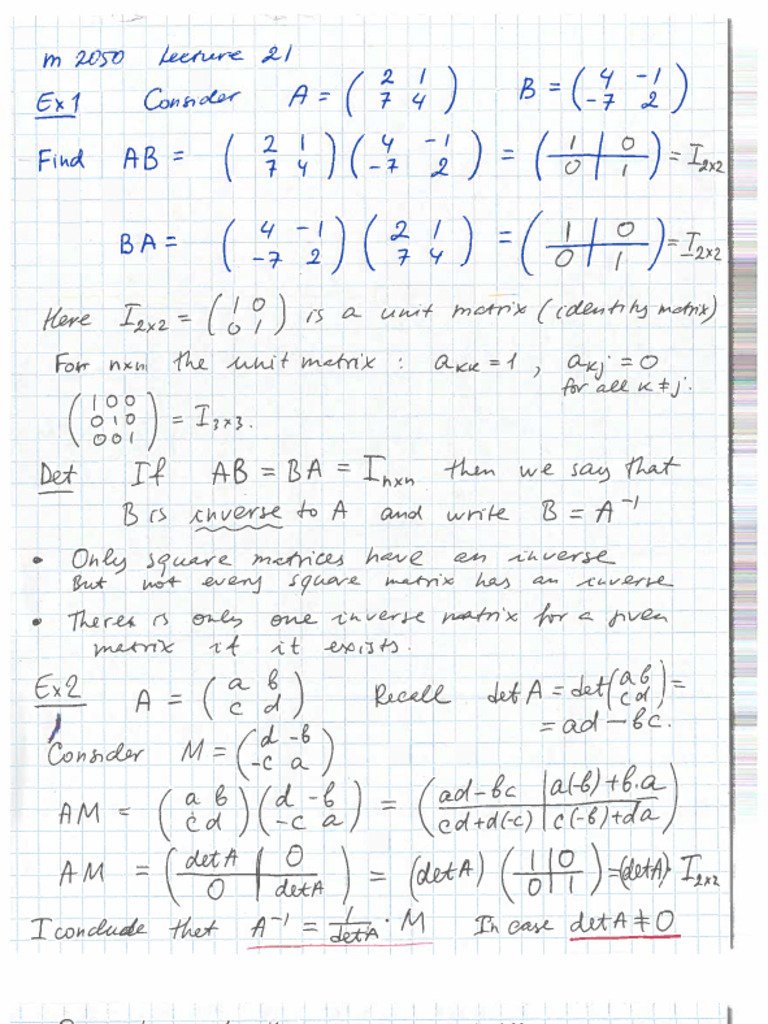 m 2050 Lecture 21
Ex1 Consider A = ( 2 1 / 7 4 ) B = ( 4 -1 / -7 2 )
Find AB = ( 2 1 / 7 4 ) ( 4 -1 / -7 2 ) = ( 1 | 0 / 0 | 1 ) = I2x2
BA = ( 4 -1 / -7 2 ) ( 2 1 / 7 4 ) = ( 1 | 0 / 0 | 1 ) = I2x2
Here I2x2 = ( 1 0 / 0 1 ) is a unit matrix (identity matrix)
For nxn the unit matrix : akk = 1 , akj = 0
for all k ≠ j.
( 1 0 0 / 0 1 0 / 0 0 1 ) = I3x3.
Def If AB = BA = Inxn then we say that
B is inverse to A and write B = A⁻¹
• Only square matrices have an inverse
But not every square matrix has an inverse
• There is only one inverse matrix for a given
matrix if it exists.
Ex2 A = ( a b / c d ) Recall det A = det( a b / c d ) =
= ad - bc.
Consider M = ( d -b / -c a )
AM = ( a b / c d ) ( d -b / -c a ) = ( ad-bc | a(-b)+b.a / cd+d(-c) | c(-b)+da )
AM = ( detA | 0 / 0 | detA ) = (detA) ( 1 | 0 / 0 | 1 ) = (detA) · I2x2
I conclude that A⁻¹ = 1/detA · M In case detA ≠ 0